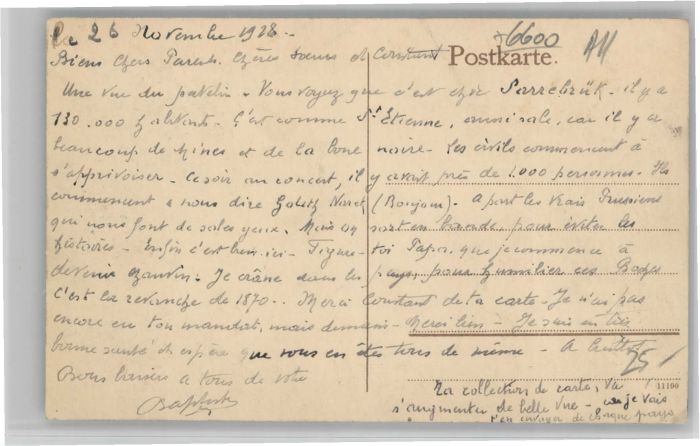 le 26 Novembre 1918 -
6600
A11
Postkarte.
Biens chers Parents. Chères soeurs et Constant
Une vue du patelin. Vous voyez que c'est chic Sarrebrük. il y a
130.000 habitants. C'est comme St Etienne, aussi sale, car il y a
beaucoup de mines et de la boue noire. Les civils commencent à
s'apprivoiser. Ce soir au concert, il y avait près de 1.000 personnes. Ils
commencent à nous dire (Bonjour). A part les vrais Prussiens
qui nous font de sales yeux. Mais on sort en bande, pour éviter les
histoires - Enfin c'est bien ici. Figure-toi Papa, que je commence à
devenir chauvin. Je crâne dans les pays, pour humilier ces
C'est la revanche de 1870.. Merci Constant de ta carte. Je n'ai pas
encore eu ton mandat, mais demain - Merci bien. Je suis en très
bonne santé et espère que vous en êtes tous de même - A
Bons baisers à tous de votre
Baptiste
25
11190
Ta collection de cartes, va
s'augmenter de belle vue - je vais
t'en envoyer de chaque pays